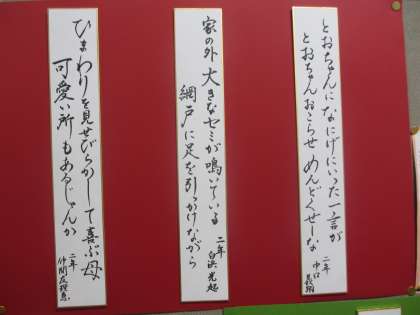 とおちゃんになにげにいった一言が
とおちゃんおこらせめんどくせーな
二年
中口
義翔
家の外大きなセミが鳴いている
網戸に足を引っかけながら
二年
白浜光起
ひまわりを見せびらかして喜ぶ母
可愛い所もあるじゃんか
二年
仲間友理恵